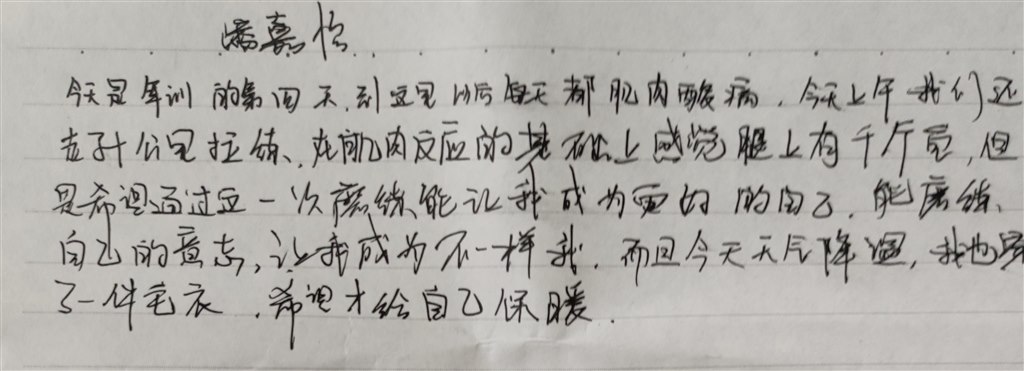 潘嘉怡
今天是军训的第四天,到这里以后每天都肌肉酸痛,今天上午我们还
去了十公里拉练、在肌肉反应的基础上感觉腿上有千斤重,但
是希望通过这一次磨练能让我成为更好的自己,能磨练
自己的意志,让我成为不一样我,而且今天天气降温,我也穿
了一件毛衣,希望才给自己保暖.